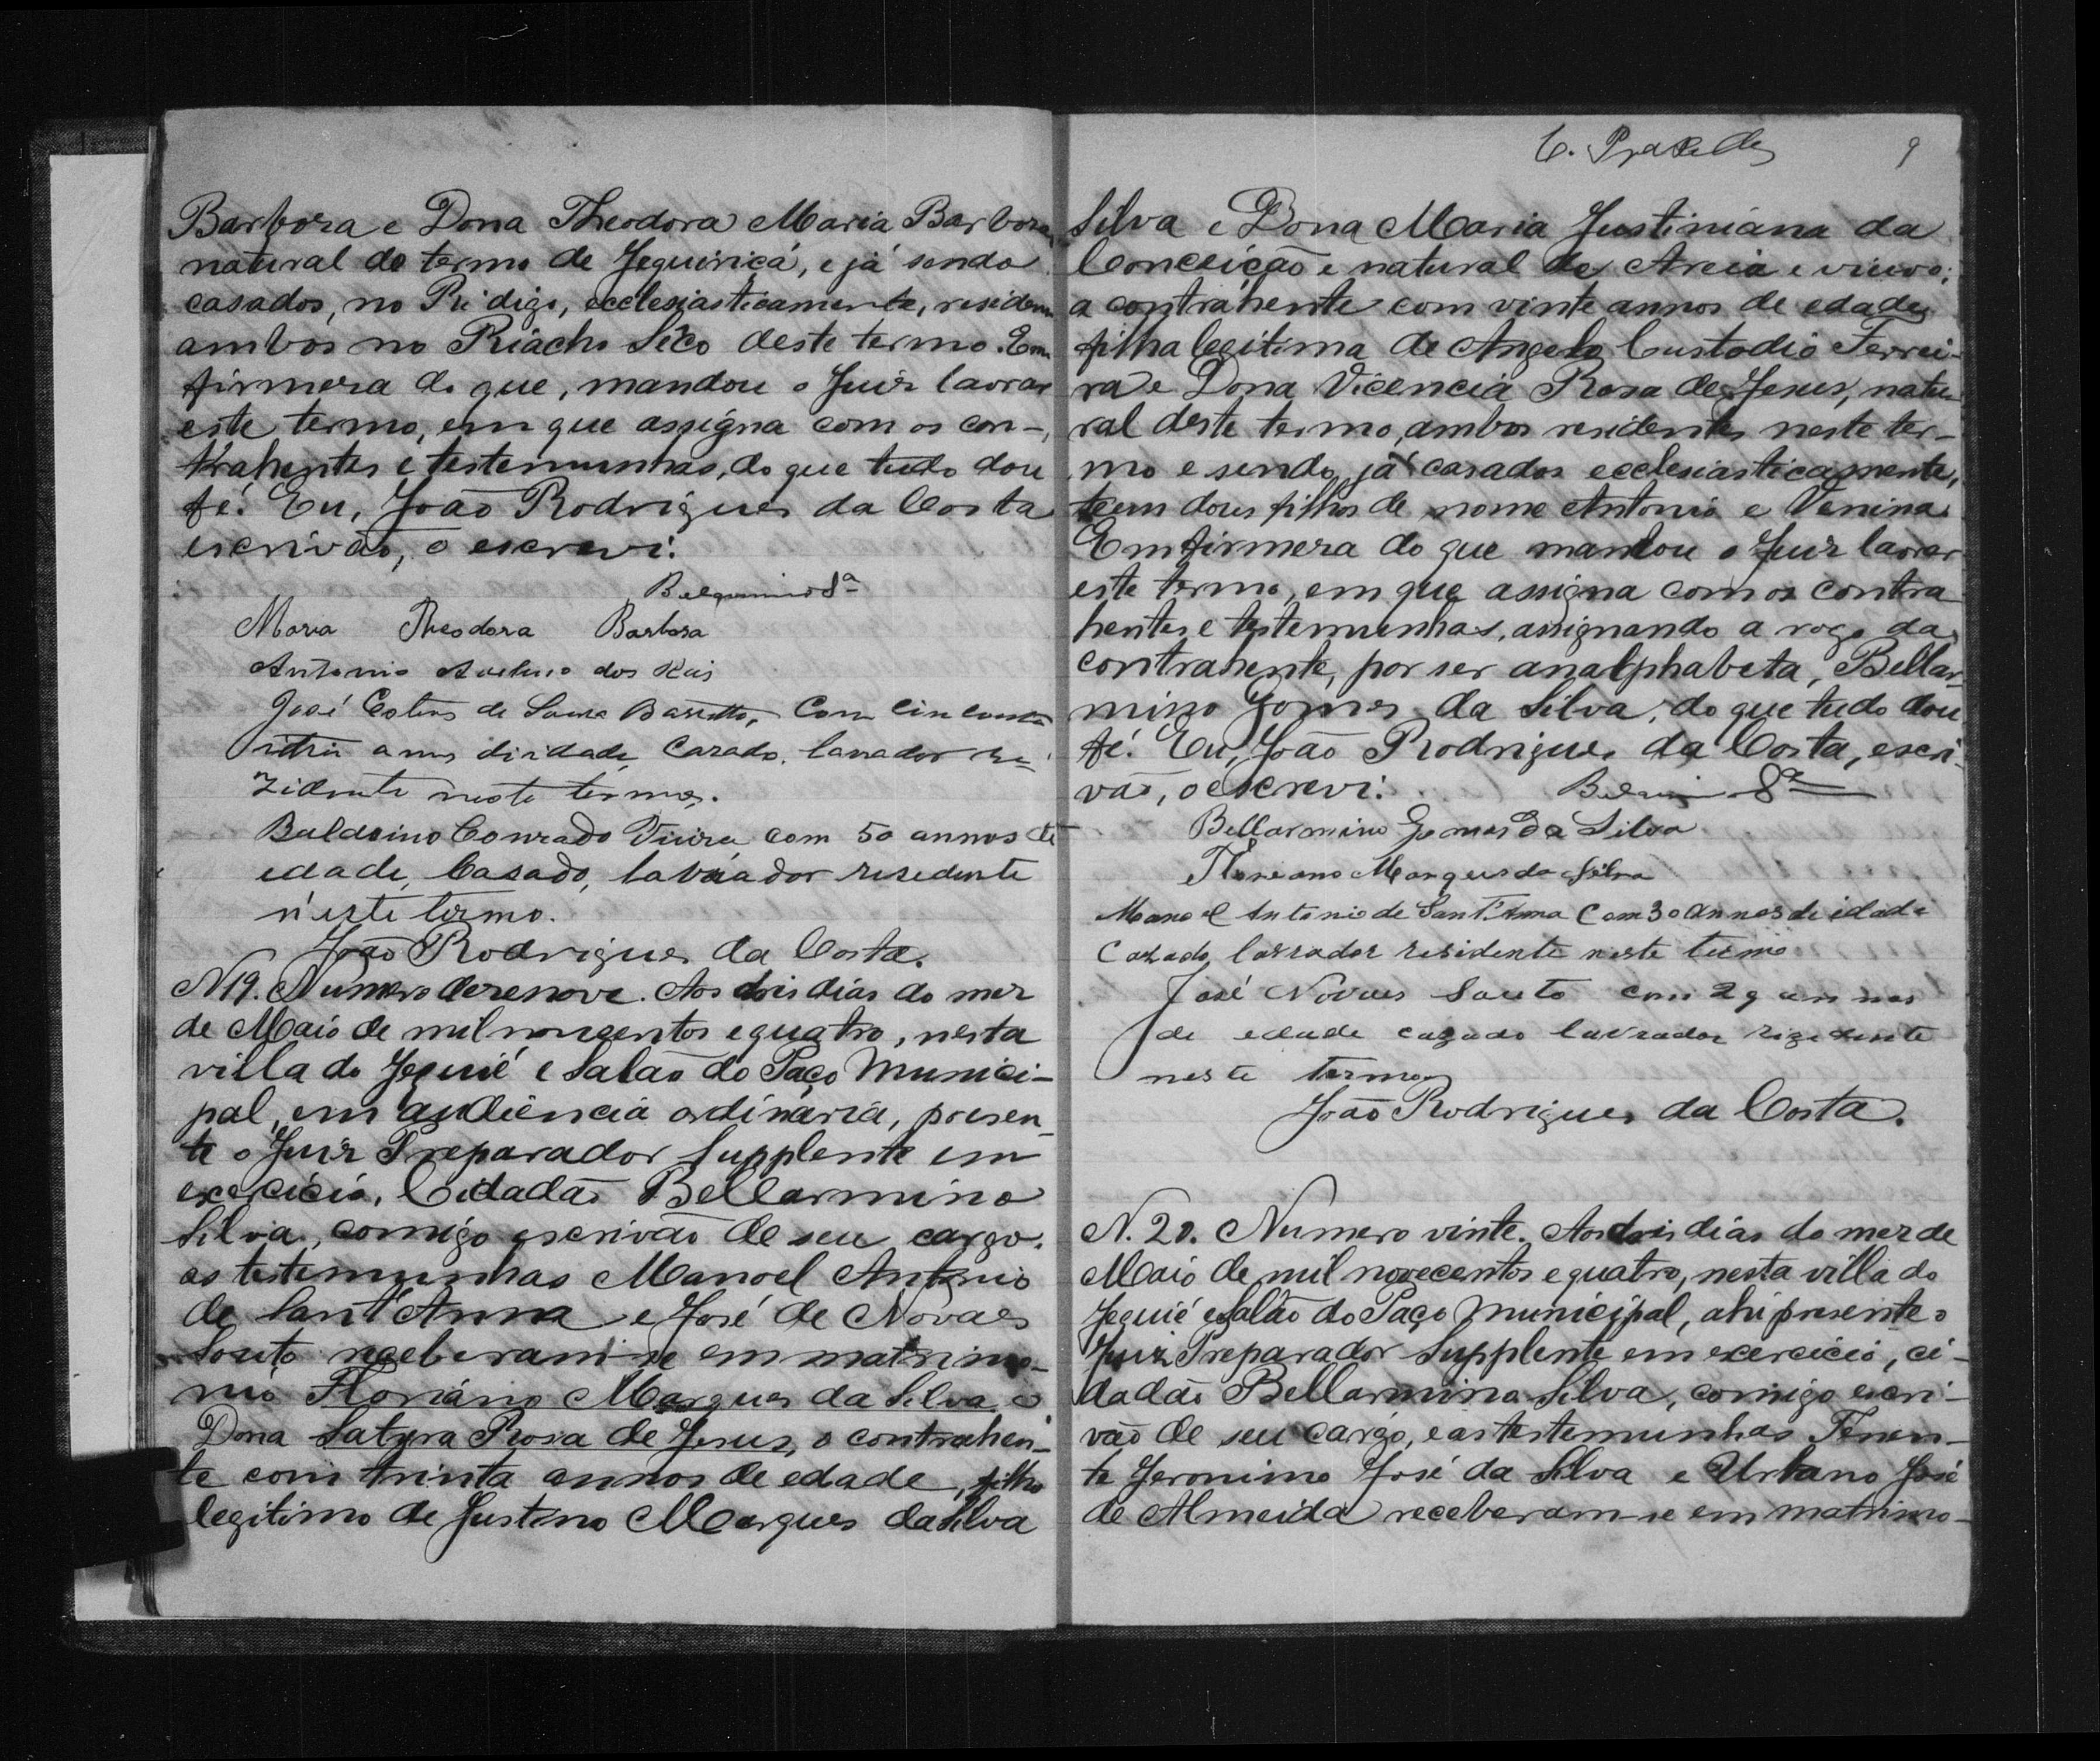 Barboza e Dona Theodora Maria Barboza,
natural do termo de Jequiriçá, e já sendo
casados, no Pé digo, ecclesiasticamente, residem
ambos no Riacho Sêco deste termo. Em
firmeza do que, mandou o Juiz lavrar
este termo, em que assigna com os con-
trahentes e testemunhas, do que tudo dou
fé. Eu, João Rodrigues da Costa
escrivão, o escrevi.
Maria Theodora Barbosa
Antonio Avelino dos Reis
José Esteves de Souza Barretto, Com cincoenta
annos didade, Cazado, lavrador re-
zidente neste termo.
Baldoino Conrado Vieira com 50 annos de
edade, Casado, lavrador resedente
n'este termo.
João Rodrigues da Costa.
N 19. Numero dezenove. Aos dois dias do mez
de Maio de mil novecentos e quatro, nesta
villa do Jequié e Salão do Paço Munici-
pal, em audiencia ordinaria, presen-
te o Juiz Preparador Supplente em
exercicio, Cidadão Bellarmino
Silva, comigo escrivão de seu cargo.
as testemunhas Manoel Antonio
de Sant'Anna e José de Novaes
Souto receberam-se em matrimo-
nio Floriano Marques da Silva e
Dona Satyra Rosa de Jesus, o contrahen-
te com trinta annos de edade, filho
legitimo de Justino Marques da Silva
9
Silva e Dona Maria Justiniana da
Conceição e natural de Areia e viuvo;
a contrahente com vinte annos de edade,
filha legitima de Angelo Custodio Ferrei-
ra e Dona Vicencia Rosa de Jesus, natu-
ral deste termo, ambos residentes neste ter-
mo e sendo já casados ecclesiasticamente,
teem dous filhos de nome Antonio e Venina.
Em firmeza do que mandou o Juiz lavrar
este termo, em que assigna com os contra
hentes e testemunhas, assignando a rogo da
contrahente, por ser analphabeta, Bellar-
mino Gomes da Silva, do que tudo dou
fé. Eu, João Rodrigues da Costa, escri-
vão, o escrevi.
Bellarmino Gomes da Silva
Floreano Marques da Silva
Manoel Antonio de Sant'Anna Com 30 annos de idade
Cazado, lavrador residente neste termo
José Novaes Souto com 29 annos
de edade cazado lavrador rezedente
neste termo
João Rodrigues da Costa.
N. 20. Numero vinte. Aos dois dias do mez de
Maio de mil novecentos e quatro, nesta villa do
Jequié e Salão do Paço Municipal, ahi presente o
Juiz Preparador Supplente em exercicio, ci-
dadão Bellarmino Silva, comigo escri-
vão de seu cargo, e as testemunhas Tenen-
te Jeronimo José da Silva e Urbano José
de Almeida receberam-se em matrimo-